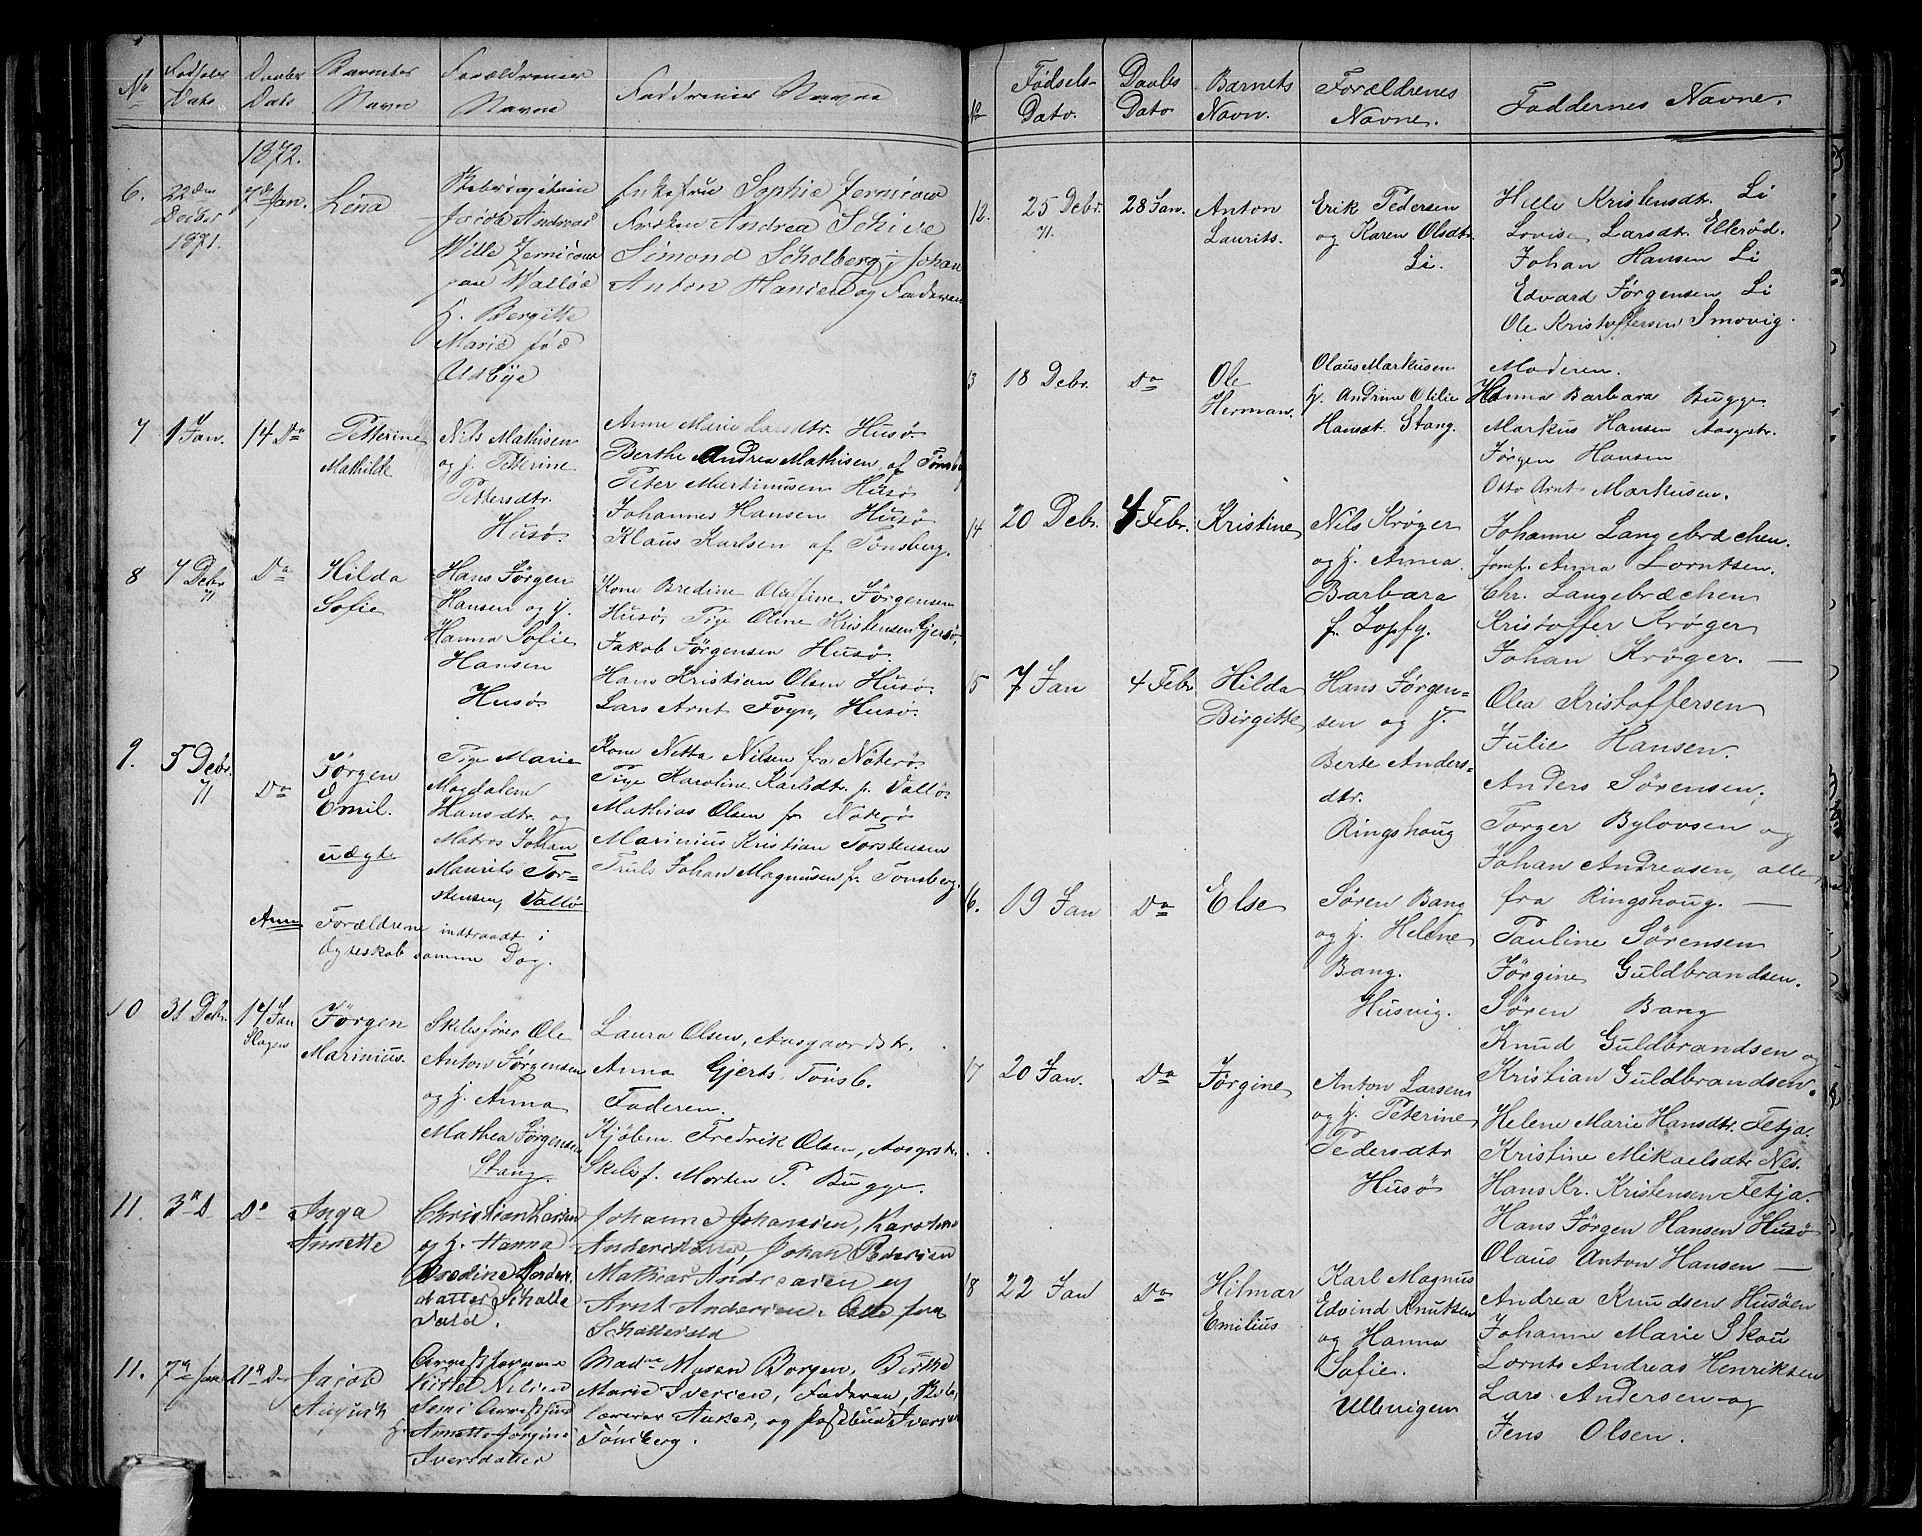 No Fødsels Dato
Daabs Dato
Barnets Navn
Forældrenes Navne
Faddernes Navne
1872.
6. 22den Decbr 1871. 7de Jan. Lina
Jacob Andreas
Wille Zernicow
paa Valløe
h. Bergitte
Marie fød
Oldbye
Enkefrue Sophie Zernicow
Frøken Andrea Schive
Simond Scholberg, Johan
Anton Hansen og Faderen
7 1 Jan. 14 Do Petterine
Mathilde
Nils Mathisen
og h. Petterine
Pettersdtr.
Husø.
Anne Marie Larsdtr. Husø.
Berthe Andrea Mathisen af Tønsb.
Peter Martinusen Husø
Johannes Hansen Husø
Klaus Karlsen af Tønsberg.
8 7 Debr 71 Do Hilda
Sofie
Hans Jørgen
Hansen og h.
Hanna Sofie
Hansen
Husø
Kone Bredine Olaffine Jørgensen
Husø, Pige Oline Kristensen Gjersø,
Jakob Jørgensen Husø.
Hans Kristian Olsen Husø.
Lars Arnt Foyn, Husø.
9. 5 Debr. 71 Do Jørgen
Emil.
uægte
Pige Marie
Magdalene
Hansdtr. og
Matros Johan
Maurits Tor-
stensen, Vallø
Kone Netta Nilsen fra Nøterø.
Pige Karoline Karlsdtr. fr. Vallø.
Mathias Olsen fr Nøterø
Marinius Kristian Torstensen
Truls Johan Magnusen fr. Tønsberg.
Anm Forældrene indtraadt i
Ægteskab samme Dag.
10 31 Debr. 14 Jan Slagen Jørgen
Marinius.
Skibsfører Ole
Anton Jørgensen
og h. Anna
Mathea Jørgensen
Stang.
Laura Olsen, Aasgaardstr.
Anna Gjerts. Tønsb.
Faderen.
Kjøbm. Fredrik Olsen, Aasgrstr.
Skibsf. Morten P. Bugge.
11. 3die D Do Inga
Annette
Christian Larsen
og h. Hanna
Bredine
datter Schalle
vald.
Johanne Johansen, Karoline
Andersdatter, Johan Pedersen
Mathias Andreasen og
Arnt Andersen. Alle fra
Schallevald
11. 7de Jan 21de Do Jacob
August
Kittel Nilsen
Annette Jørgine
Iversdatter
Madme Musen Borgen, Birthe
Marie Iversen, Faderen,
og Iversen
Tønsberg.
No Fødsels-
Dato.
Daabs
Dato
Barnets
Navn.
Forældrenes
Navne.
Faddernes Navne.
12. 25 Debr. 71. 28 Jan. Anton
Laurits.
Erik Pedersen
og Karen Olsdtr.
Li.
Helle Kristensdtr. Li
Lovise Larsdtr. Ellerød.
Johan Hansen Li
Edvard Jørgensen Li
Ole Kristoffersen Smovig.
13 18 Debr. Do Ole
Herman.
Olaus Markusen
h. Andrine Otilie
Hansdt. Stang.
Moderen.
Hanna Barbara Bugge
Markus Hansen Aasgstr.
Jørgen Hansen
Otto Arnt Markusen.
14 20 Debr. 4 Febr. Kristine
Nils Krøger
og h. Anna
Barbara
f. Zopfy.
Johanne Langebræchen.
Jomfr. Anna Lorntsen.
Chr. Langebræchen
Kristoffer Krøger
Johan Krøger. —
15 7 Jan 4 Febr Hilda
Birgitte
Hans Jørgen-
sen og h.
Berte Anders-
dtr.
Ringshoug
Olea Kristoffersen
Julie Hansen.
Anders Sørensen,
Torger Bylovsen og
Johan Andreasen, alle
fra Ringshoug. —
16. 19 Jan Do Else
Søren Bang
og h. Helene
Bang.
Husvig.
Pauline Sørensen
Jørgine Guldbrandsen.
Søren Bang
Knud Guldbrandsen og
Kristian Guldbrandsen.
17 20 Jan. Do Jørgine
Anton Larsen
og h. Peterine
Pedersdtr
Husø
Helene Marie Hansdtr. Fetja.
Kristine Mikaelsdtr Nes.
Hans Kr. Kristensen Fetja.
Hans Jørgen Hansen Husø
Olaus Anton Hansen —
18 22 Jan Do Hilmar
Emilius
Karl Magnus
Edvind Knutsen
og Hanna
Sofie.
Ulbnigen
Andrea Knudsen Husøen
Johanne Marie Skou
Lornts Andreas Henriksen
Lars Andersen og
Jens Olsen.